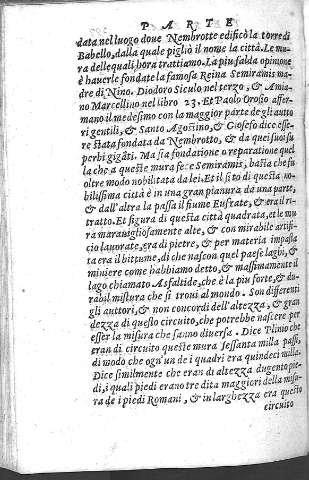 PARTE
data nel luogo doue Nembrotte edificò la torre di
Babello, dalla quale pigliò il nome la città. Le mu
ra delle quali hora trattiamo. La piu salda opinione
è hauerle fondate la famosa Reina Semiramis ma
dre di Nino. Diodoro Siculo nel terzo, & Amia
no Marcellino nel libro 23. Et Paolo Orosio affer
mano il medesimo con la maggior parte de gli autto
ri gentili, & Santo Agostino, & Giosefo dice esse
re stata fondata da Nembrotto, & da quei suoi su
perbi gigãti. Ma sia fondatione o reparatione quel
la che a queste mura fece Semiramis, basta che fu
oltre modo nobilitata da lei. Et il sito di questa no
bilissima città è in una gran pianura da una parte,
& dall'altra la passa il fiume Eufrate, & era il ri-
tratto. Et figura di questa città quadrata, et le mu
ra marauigliosamente alte, & con mirabile artifi-
cio lauorate, era di pietre, & per materia impasta
ta era il bittume, di che nascon quel paese laghi, &
miniere come habbiamo detto, & massimamente il
lago chiamato Asfaltide, che è la piu forte, & du-
rabil mistura che si troui al mondo. Son differenti
gli auttori, & non concordi dell'altezza, & gran
dezza di questo circuito, che potrebbe nascere per
esser la misura che fanno diuersa. Dice Plinio che
eran di circuito queste mura sessanta milla passi,
di modo che ogn'un de i quadri era quindeci milla.
Dice similmente che eran di altezza dugento pie-
di, i quali piedi erano tre dita maggiori della misu-
ra de i piedi Romani, & in larghezza era questo
circuito